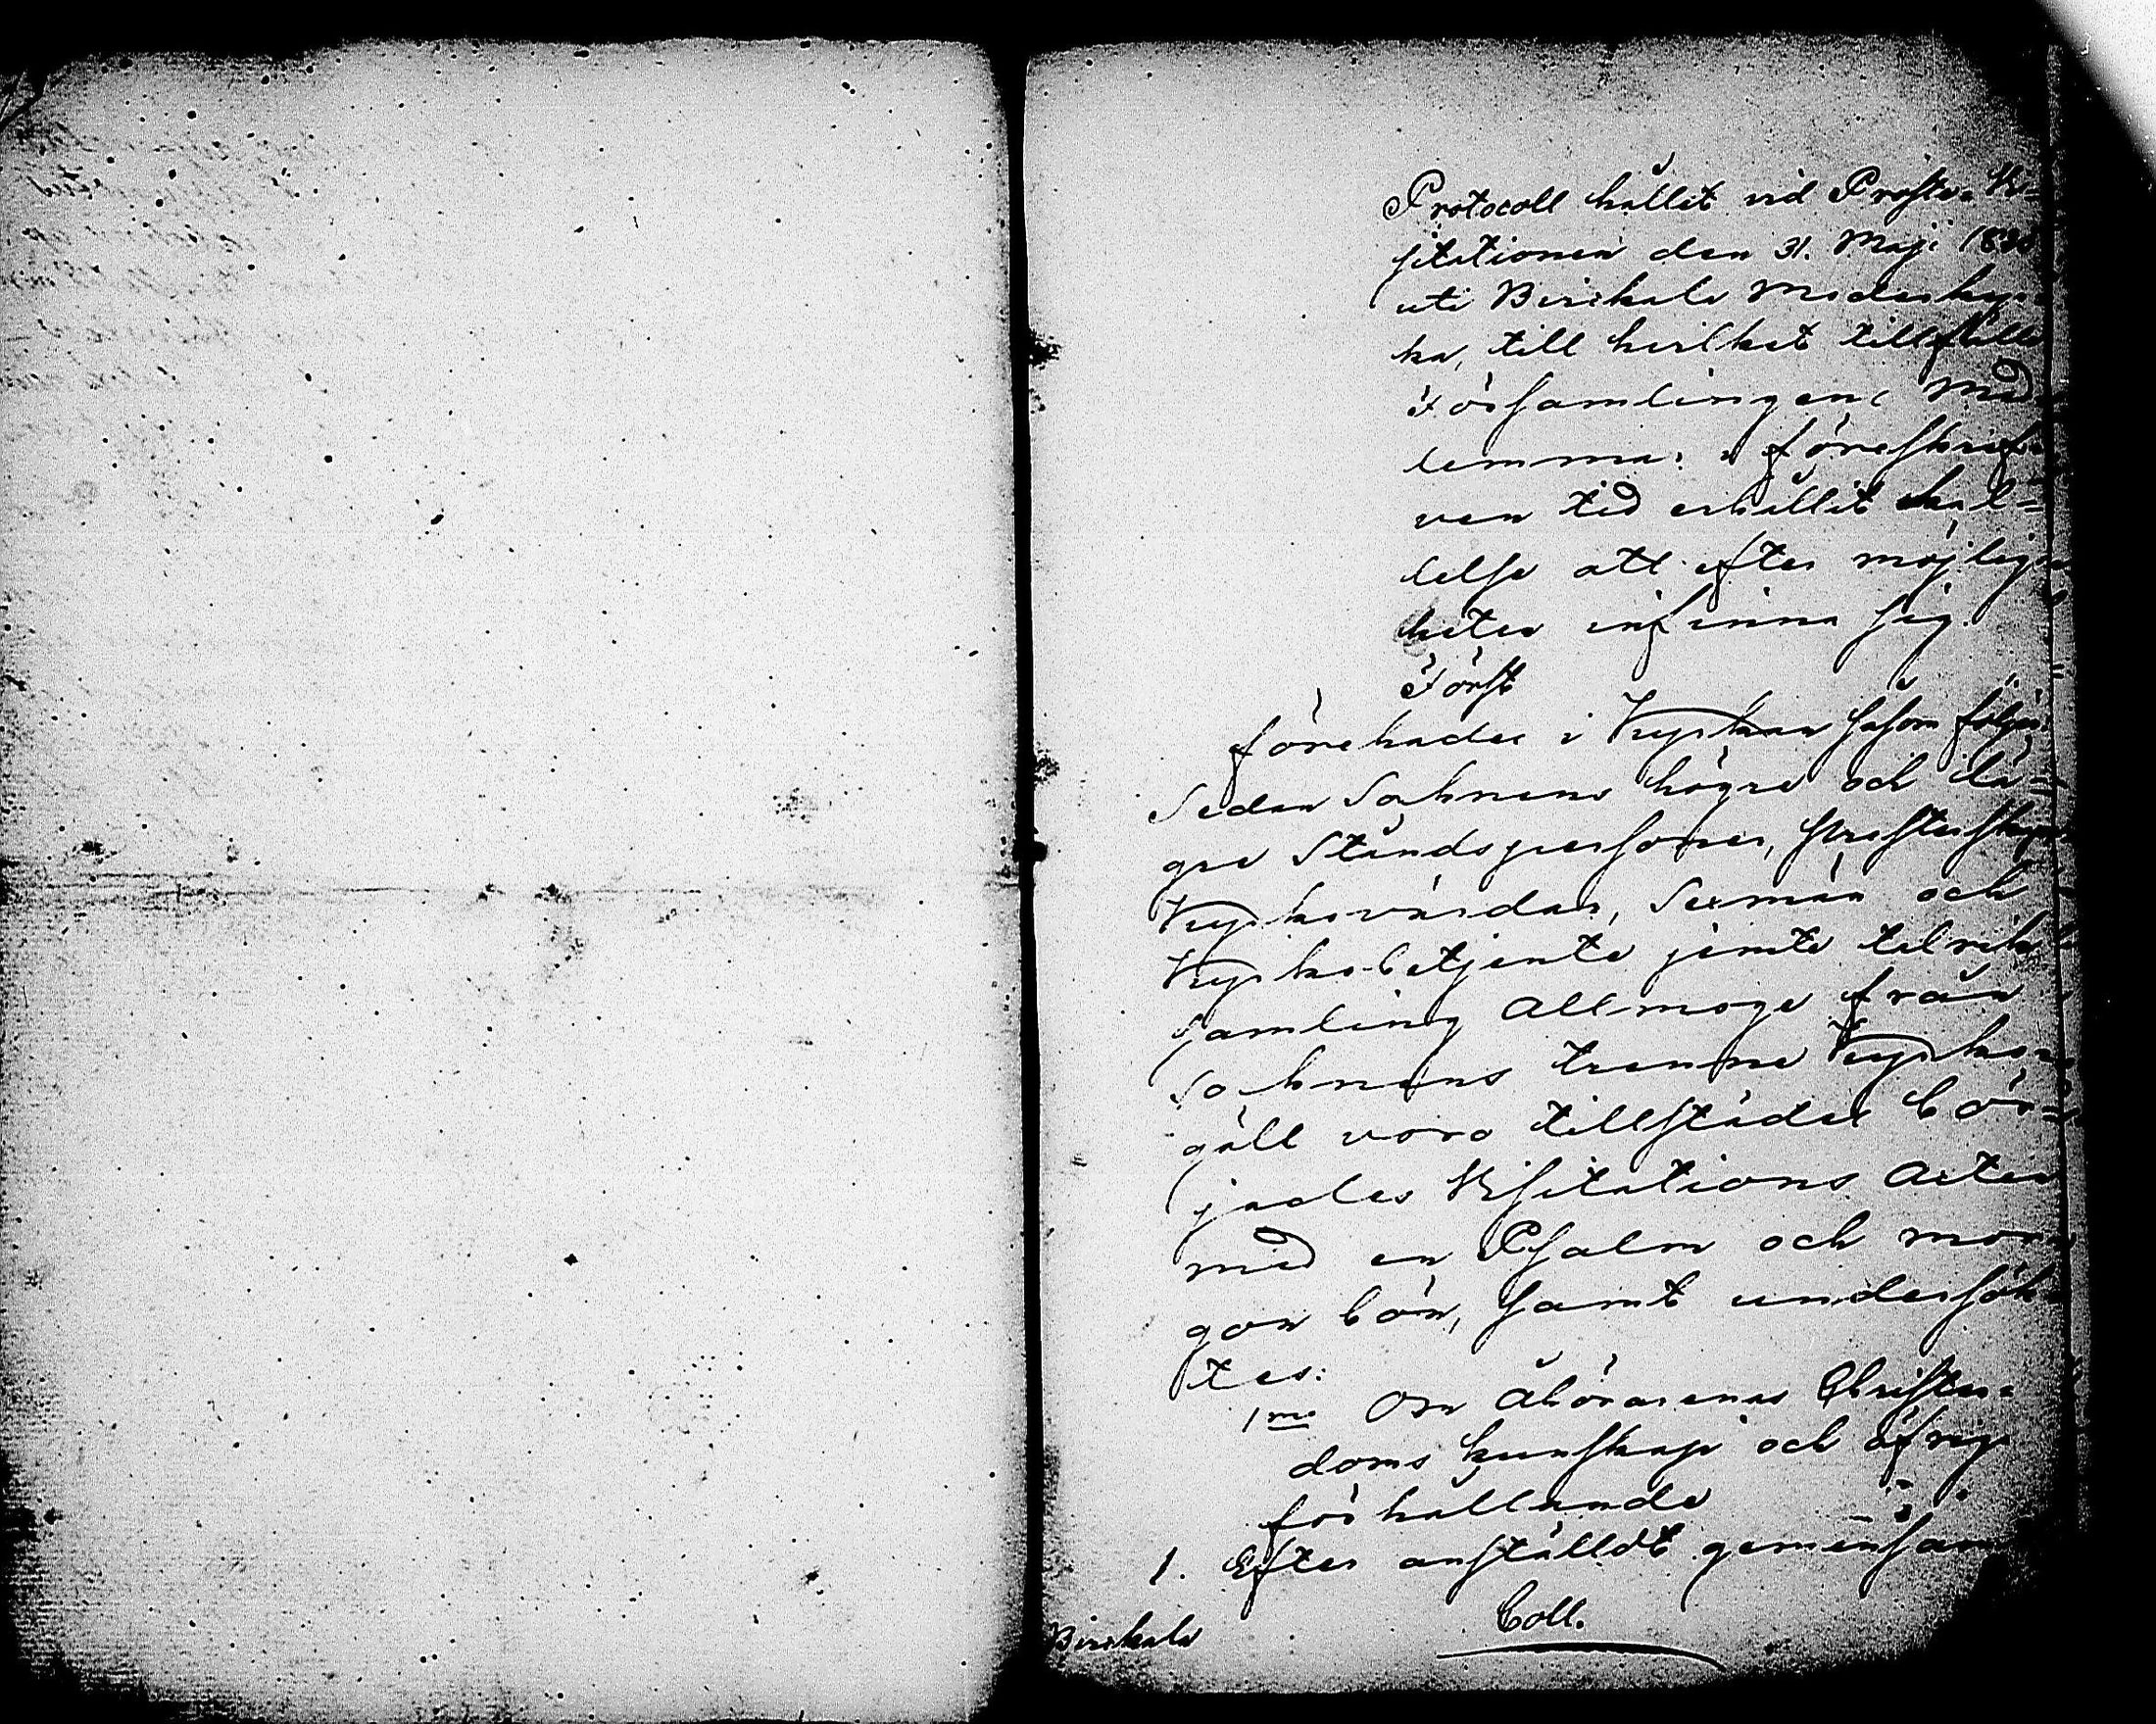 Protocoll hållit vid Prosts Vi-
sitationen den 31. Maji
uti Birkala Moderkyr-
ka, till hvilket tillfälle
Församlingens Med-
lemmar i föreskrif-
ven tid erhållit kal-
lelse att efter möjlig-
heten infinna sig.
Först
förehades i Kyrkan såsom följer:
Sedan Socknens högre och lä-
gre Ståndspersoner, Presterskap,
Kyrkovärdar, Sexmän och
Kyrko-betjente jemte talrik
samling Allmoge från
Socknens trenne Kyrko-
gäll voro tillstädes bör-
jades Visitations Acten
med en Psalm och mor-
gon bön, samt undersök-
tes:
1mo Om Åhörarenas Christen-
doms kunskap och öfrig
förhållande
1. Efter anställdt gemensam
Birkala Coll.